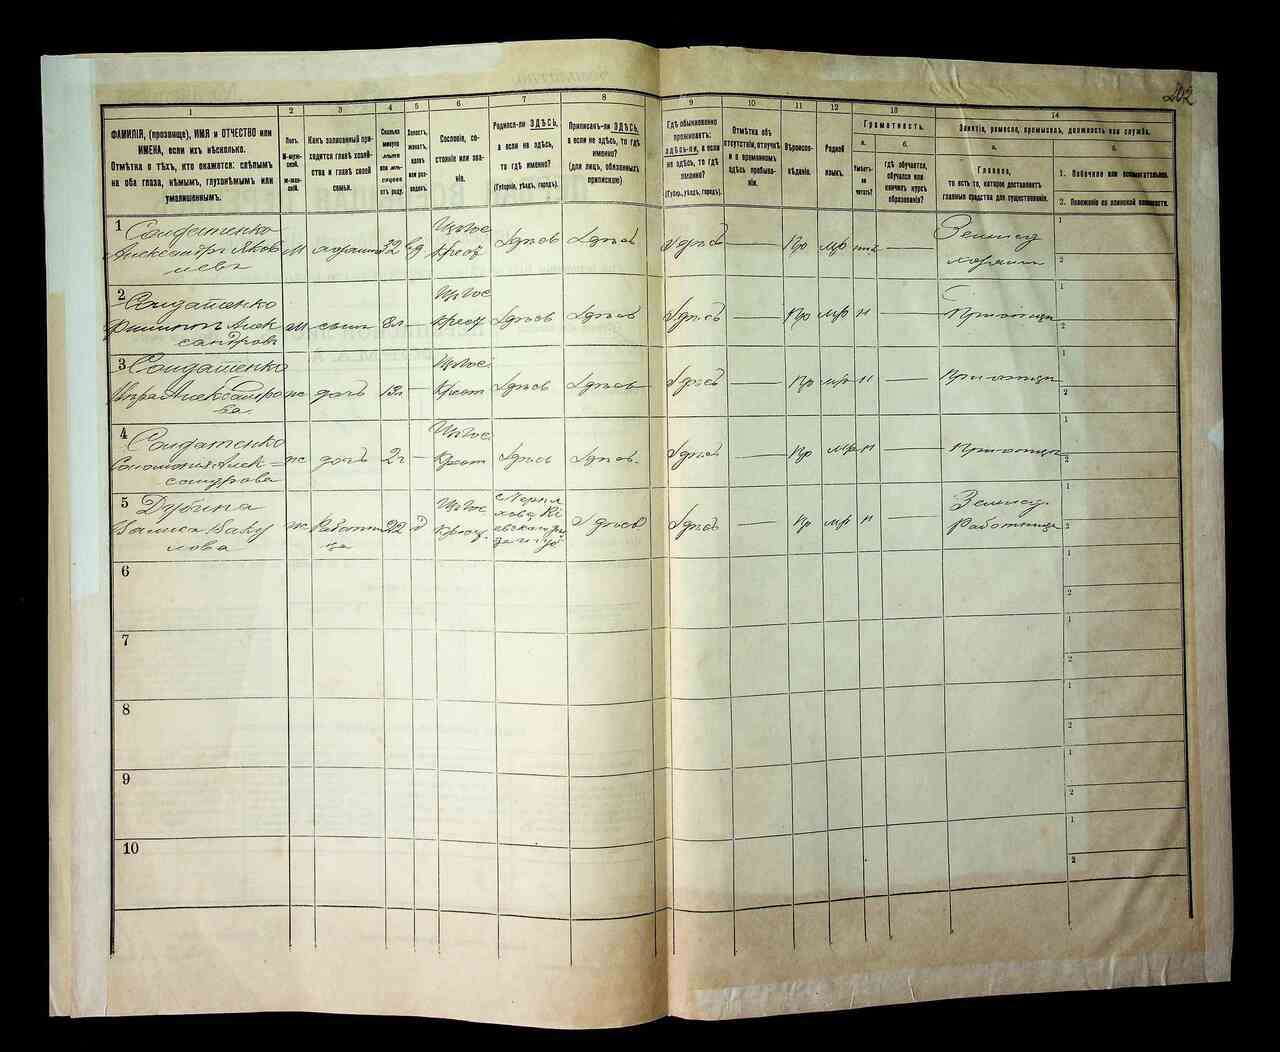 202
1
2
3
4
5
6
7
8
9
10
11
12
13
14
ФАМИЛІЯ, (прозвище), ИМЯ и ОТЧЕСТВО или
ИМЕНА, если ихъ нѣсколько.
Отмѣтка о тѣхъ, кто окажется: слѣпымъ
на оба глаза, нѣмымъ, глухонѣмымъ или
умалишеннымъ.
Полъ.
М-муж-
ской.
Ж-жен-
скій.
Какъ записанный при-
ходится главѣ хозяй-
ства и главѣ своей
семьи.
Сколько
минуло
лѣтъ
или мѣся-
цевъ
отъ роду.
Холостъ,
женатъ,
вдовъ
или раз-
веденъ.
Сословіе, со-
стояніе или зва-
ніе.
Родился-ли ЗДѢСЬ,
а если не здѣсь,
то гдѣ именно?
(Губернія, уѣздъ, городъ).
Приписанъ-ли ЗДѢСЬ,
а если не здѣсь, то гдѣ
именно?
(для лицъ, обязанныхъ
припискою)
Гдѣ обыкновенно
проживаетъ:
здѣсь-ли, а если
не здѣсь, то гдѣ
именно?
(Губер., уѣздъ, городъ).
Отмѣтка объ
отсутствіи, отлучкѣ
и о временномъ
здѣсь пребыва-
ніи.
Вѣроиспо-
вѣданіе.
Родной
языкъ.
Грамотность.
а.
Умѣетъ-
ли
читать?
б.
гдѣ обучается,
обучался или
кончилъ курсъ
образованія?
Занятіе, ремесло, промыселъ, должность или служба.
а.
Главное,
то есть то, которое доставляетъ
главныя средства для существованія.
б.
1. Побочное или вспомогательное.
2. Положеніе по воинской повинности.
1
Солдатенко
Александръ Яков
левъ
м
хозяинъ
32
вд
Крест
Здѣсь
Здѣсь
Здѣсь
Пр
мр
Землед
хозяинъ
1
2
2
Солдатенко
Филиппъ Алек
сандровъ
м
сынъ
8л
Крест
Здѣсь
Здѣсь
Здѣсь
Пр
мр
н
При отцѣ
1
2
3
Солдатенко
Александро
ва
ж
дочь
Крест
Здѣсь
Здѣсь
Здѣсь
Пр
мр
н
При отцѣ
1
2
4
Солдатенко
Алек=
сандрова
ж
дочь
2г
Крест
Здѣсь
Здѣсь
Здѣсь
Пр
мр
н
При отцѣ
1
2
5
Дубина
Ваку
лова
ж
Работни
ца
22
д
Крест.
Здѣсь
Здѣсь
Пр
мр
н
Землед.
Работница
1
2
6
1
2
7
1
2
8
1
2
9
1
2
10
1
2